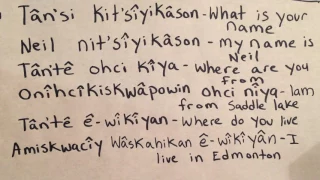 Tân'si Kit'sîyikâson - What is your
name
Neil nit'sîyikâson - my name is
Neil
Tân'tê ohci Kîya - where are you
from
Onîhcîkiskwâpowin ohci nîya - I am
from Saddle lake
Tân'tê ê-wîkîyan - Where do you live
Amiskwacîy Wâskahikan ê-wîkîyân - I
live in Edmonton